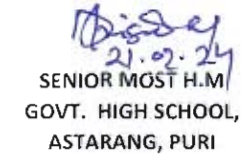 21.02.24
SENIOR MOST H.M
GOVT. HIGH SCHOOL,
ASTARANG, PURI